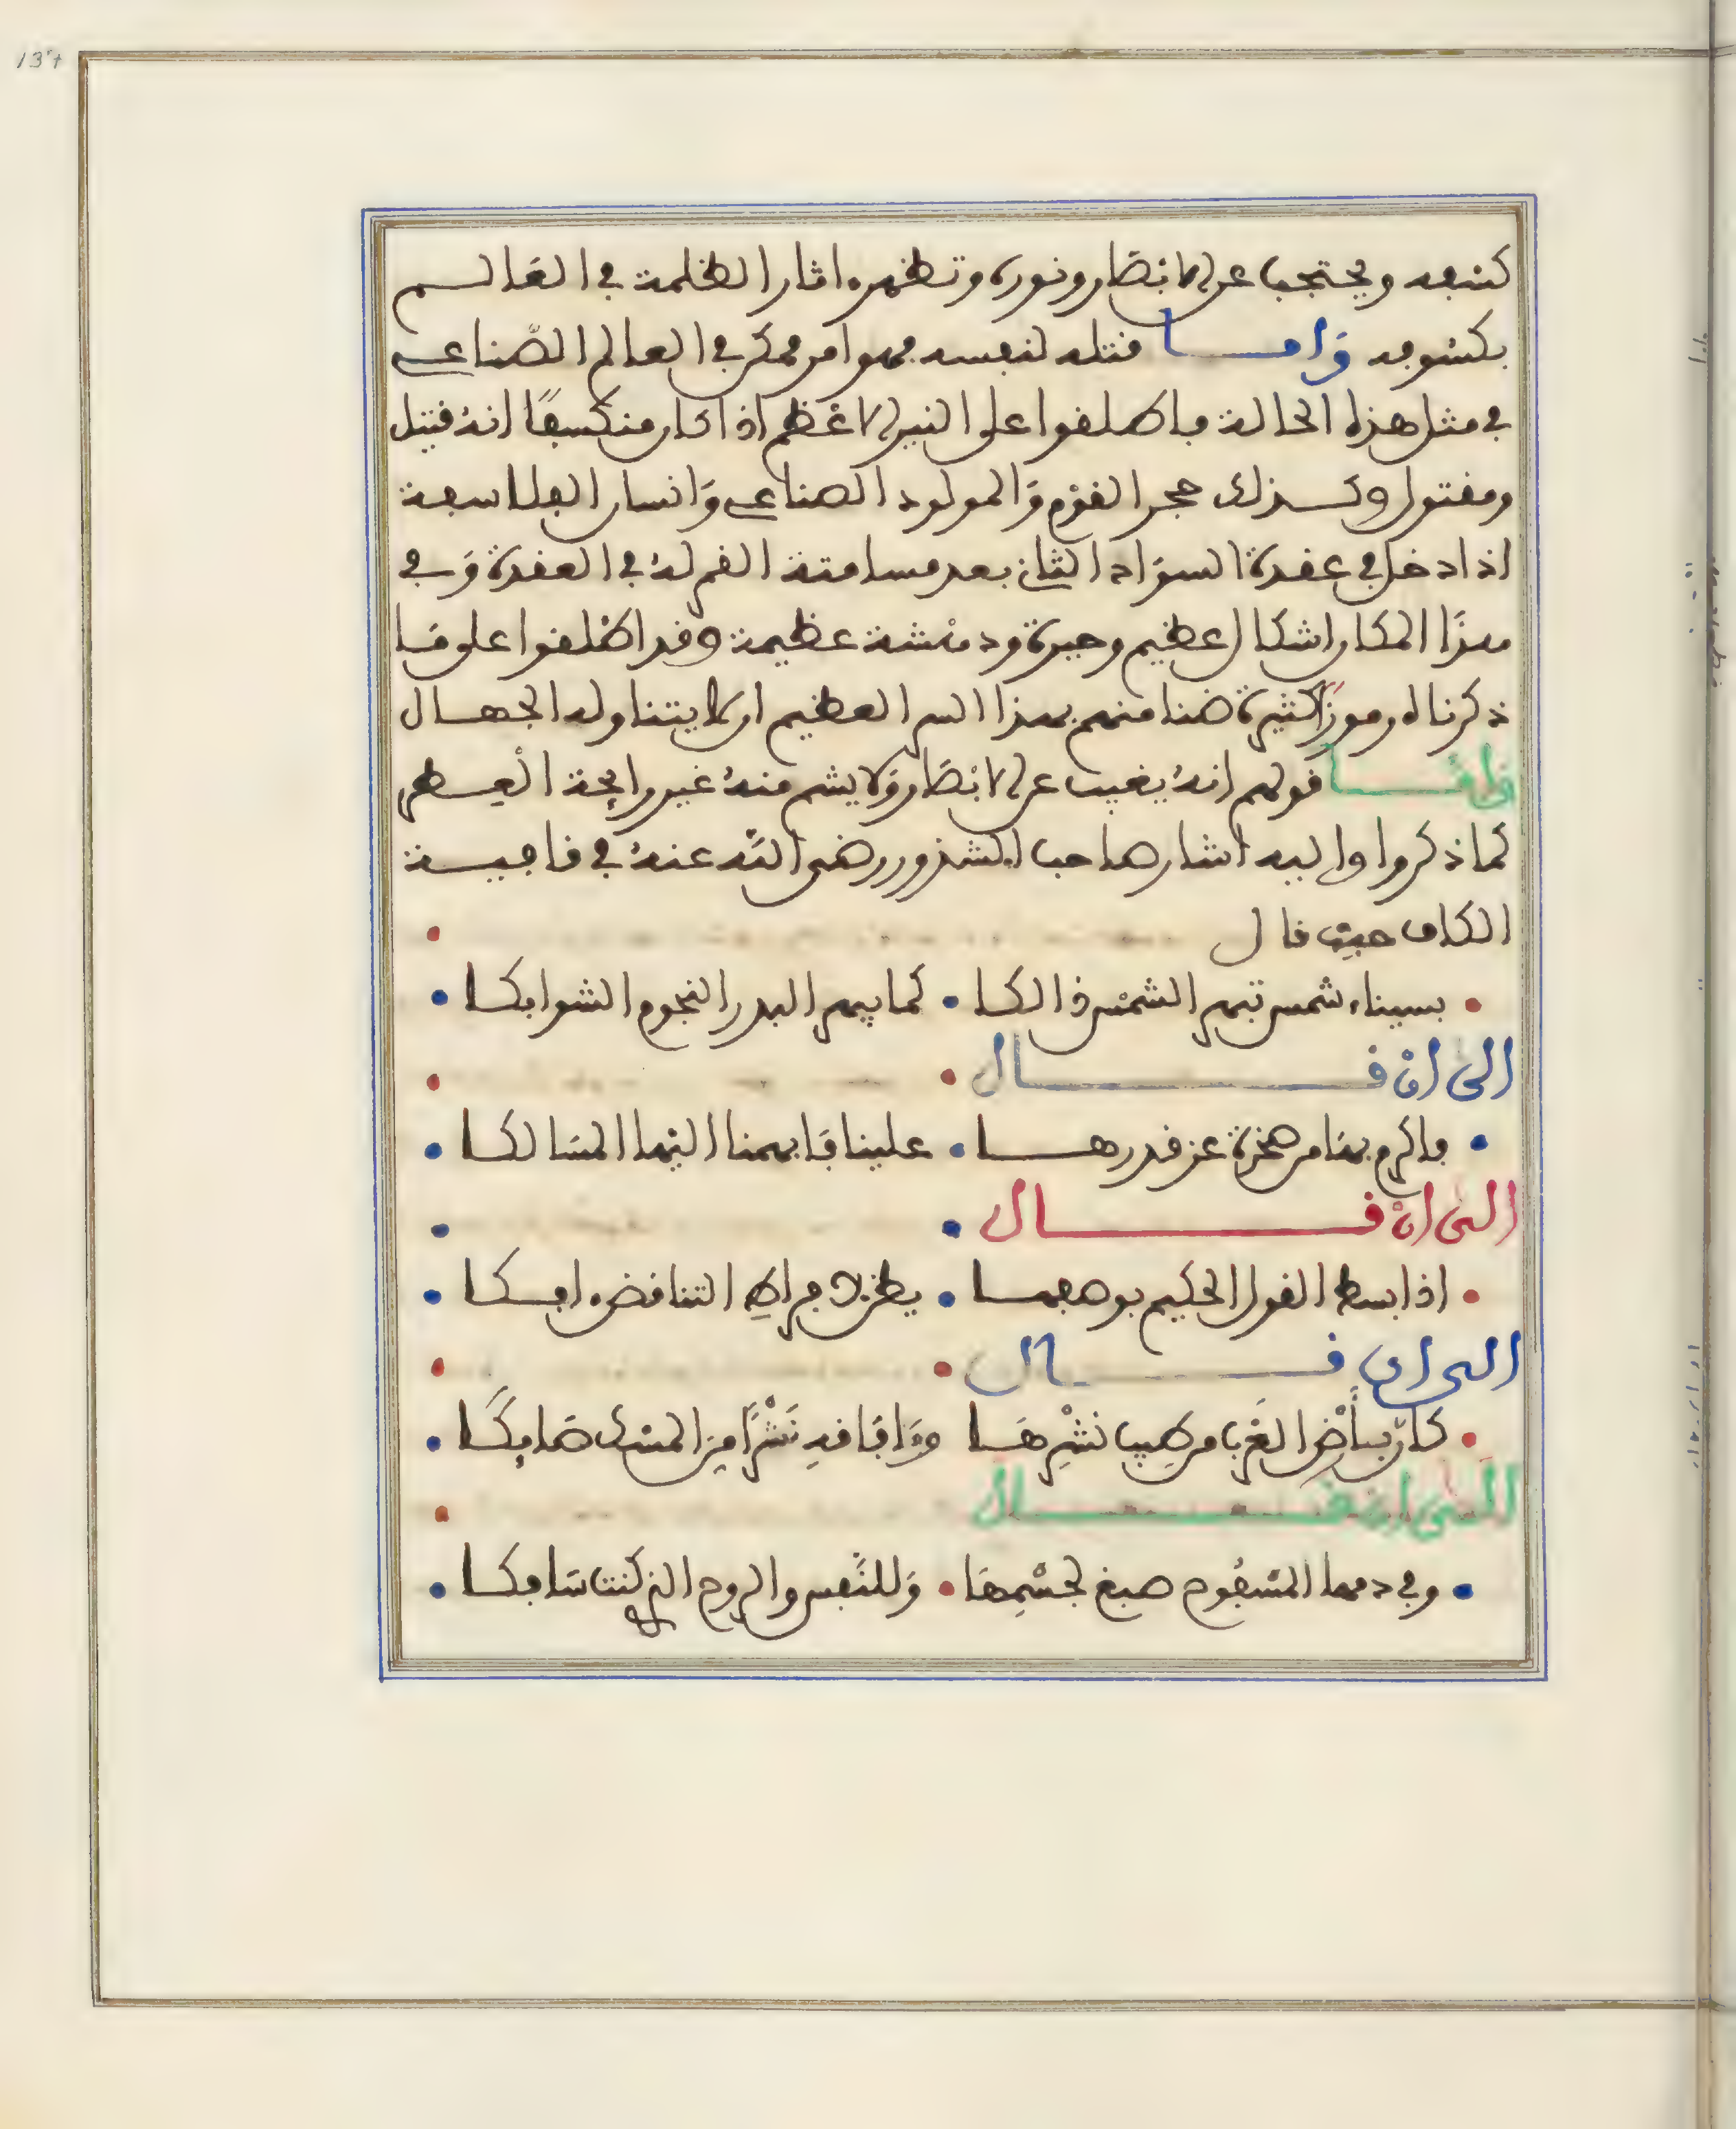 كشفه ويحتجب عن الابصار ونوره وتظهر اثار الظلمة في العالم
بكسوفه وَاما قتله لنفسه فهو امر ممكن في العالم الصّناعي
في مثل هذه الحالة فاطلقوا على النير الاعظم اذا كان منكسفًا انهُ قتيل
ومقتول وكذلك حجر القوم وَالمولود الصناعي وَانسان الفلاسفة
اذا دخل في عقدة السوَاد الثاني بعد مسامتة القمر لهُ في العقدة وَفي
هذَا المكان اشكال عظيم وحيرة ودهشة عظيمة وقد اطلقوا على مَا
ذكرناه رموزًا كثيرة ضنا منهم بهذا السر العظيم ان لا يتناوله الجهال
فامَا قولهم انهُ يغيب عن الابصَار وَلا يشم منهُ غير رايحة العِطر
كما ذكروا واليه اشار صاحب الشذور رضي اللّه عنهُ في قافية
الكاف حيث قال
بسيناء شمس تبهر الشمْس ذالكا • كما يبهر البدر النجوم الشوابكا
الى انْ قال
فاكرم بهَا من صخرة عز قدرهـا • علينا فَابهمنا اليْها المسَالكا
الى انْ قال
اذا بسط القول الحكيم بوصفها • يظن به من اجل التناقض افكا
الى ان قال
كانّ بأَرْض الغَرب من طِيب نشْرِهَا وَوَافَا فهِ نَشْرًا مِن المسْك صَايِكَا
الى ان قال
وفي دمها المسْفُوح صبغ لجسْمِهَا • وَللنَّفس والروح الذي كنت سَافكا
137